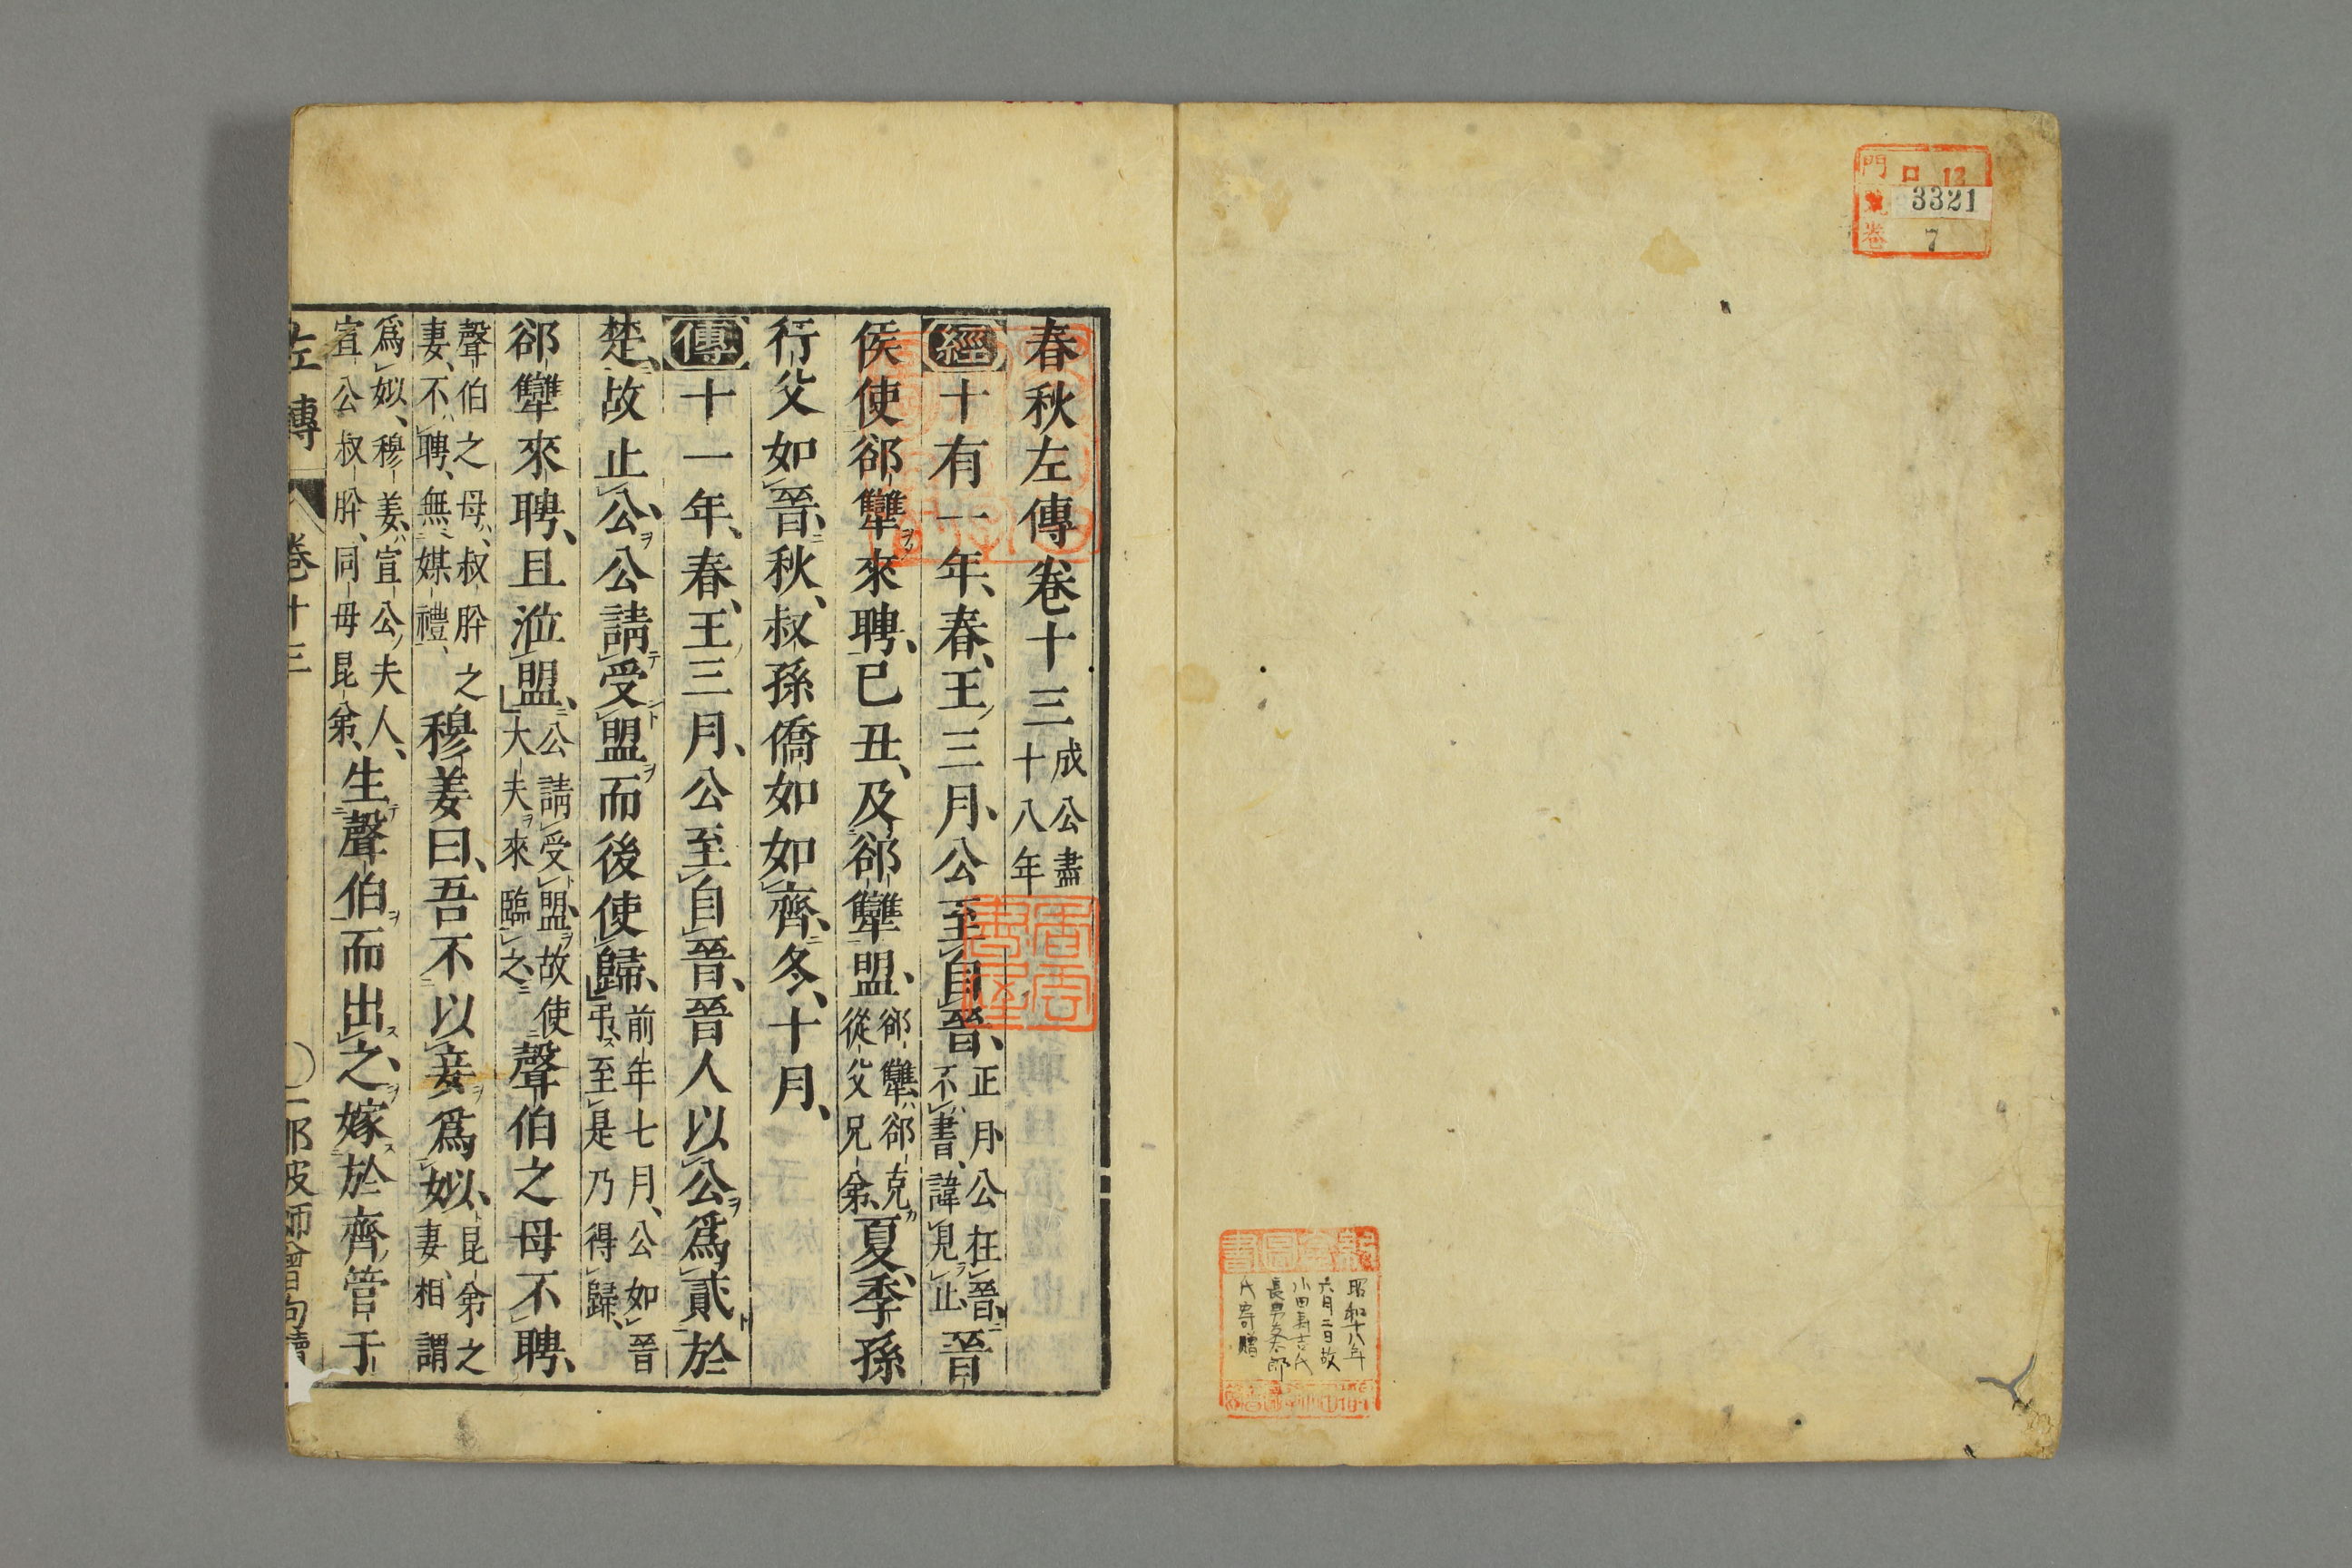 門 口 12
號 3321
卷 7
昭和十八年
六月二日故
小田寿吉氏
長男泰太郎
氏寄贈
春秋左傳卷十三 成公盡十八年
經十有一年、春、王三月、公至自晉、正月公在晉、不書、諱見止、晉
侯使郤犨來聘、已丑、及郤犨盟、郤犨、郤克從父兄弟、夏、季孫
行父如晉、秋、叔孫僑如如齊、冬、十月、
傳十一年、春、王三月、公至自晉、晉人以公爲貳於
楚、故止公、公請受盟而後使歸、前年七月、公如晉弔、至是乃得歸、
郤犨來聘、且涖盟、公請受盟、故使大夫來臨之、聲伯之母不聘、
聲伯之母、叔肸之妻、不聘、無媒禮、穆姜曰、吾不以妾爲姒、昆弟之妻、相謂
爲姒、穆姜、宣公夫人、宣公叔肸、同母昆弟、生聲伯而出之、嫁於齊管于
左傳 卷十三 一 那波師曾句讀